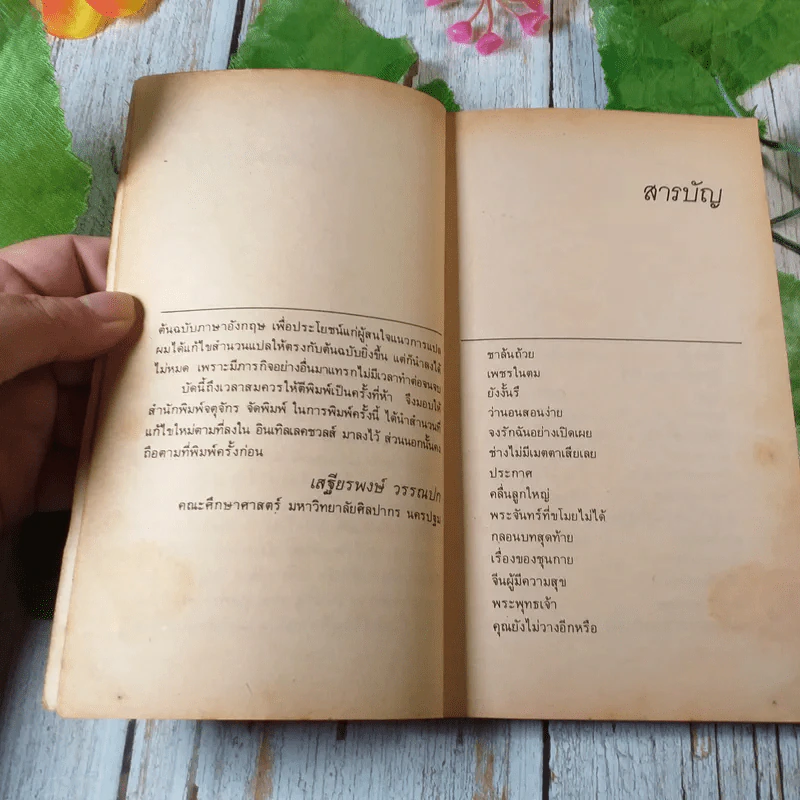 ต้นฉบับภาษาอังกฤษ เพื่อประโยชน์แก่ผู้สนใจแนวการแปล
ผมได้แก้ไขสำนวนแปลให้ตรงกับต้นฉบับยิ่งขึ้น แต่ก็นำลงได้
ไม่หมด เพราะมีภารกิจอย่างอื่นมาแทรกไม่มีเวลาทำต่อจนจบ
บัดนี้ถึงเวลาสมควรให้ตีพิมพ์เป็นครั้งที่ห้า จึงมอบให้
สำนักพิมพ์จตุจักร จัดพิมพ์ ในการพิมพ์ครั้งนี้ ได้นำสำนวนที่
แก้ไขใหม่ตามที่ลงใน อินเทิลเลคชวลส์ มาลงไว้ ส่วนนอกนั้นคง
ถือตามที่พิมพ์ครั้งก่อน
เสฐียรพงษ์ วรรณปก
คณะศึกษาศาสตร์ มหาวิทยาลัยศิลปากร นครปฐม
สารบัญ
ชาล้นถ้วย
เพชรในตม
ยังงั้นรึ
ว่านอนสอนง่าย
จงรักฉันอย่างเปิดเผย
ช่างไม่มีเมตตาเสียเลย
ประกาศ
คลื่นลูกใหญ่
พระจันทร์ที่ขโมยไม่ได้
กลอนบทสุดท้าย
เรื่องของชุนกาย
จีนผู้มีความสุข
พระพุทธเจ้า
คุณยังไม่วางอีกหรือ